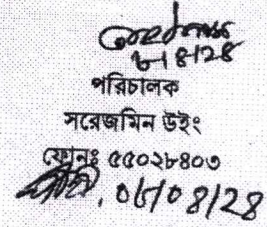 ৮/৪/২৪
পরিচালক
সরেজমিন উইং
ফোনঃ ৫৫০২৮৪০৩
০৮/০৪/২৪